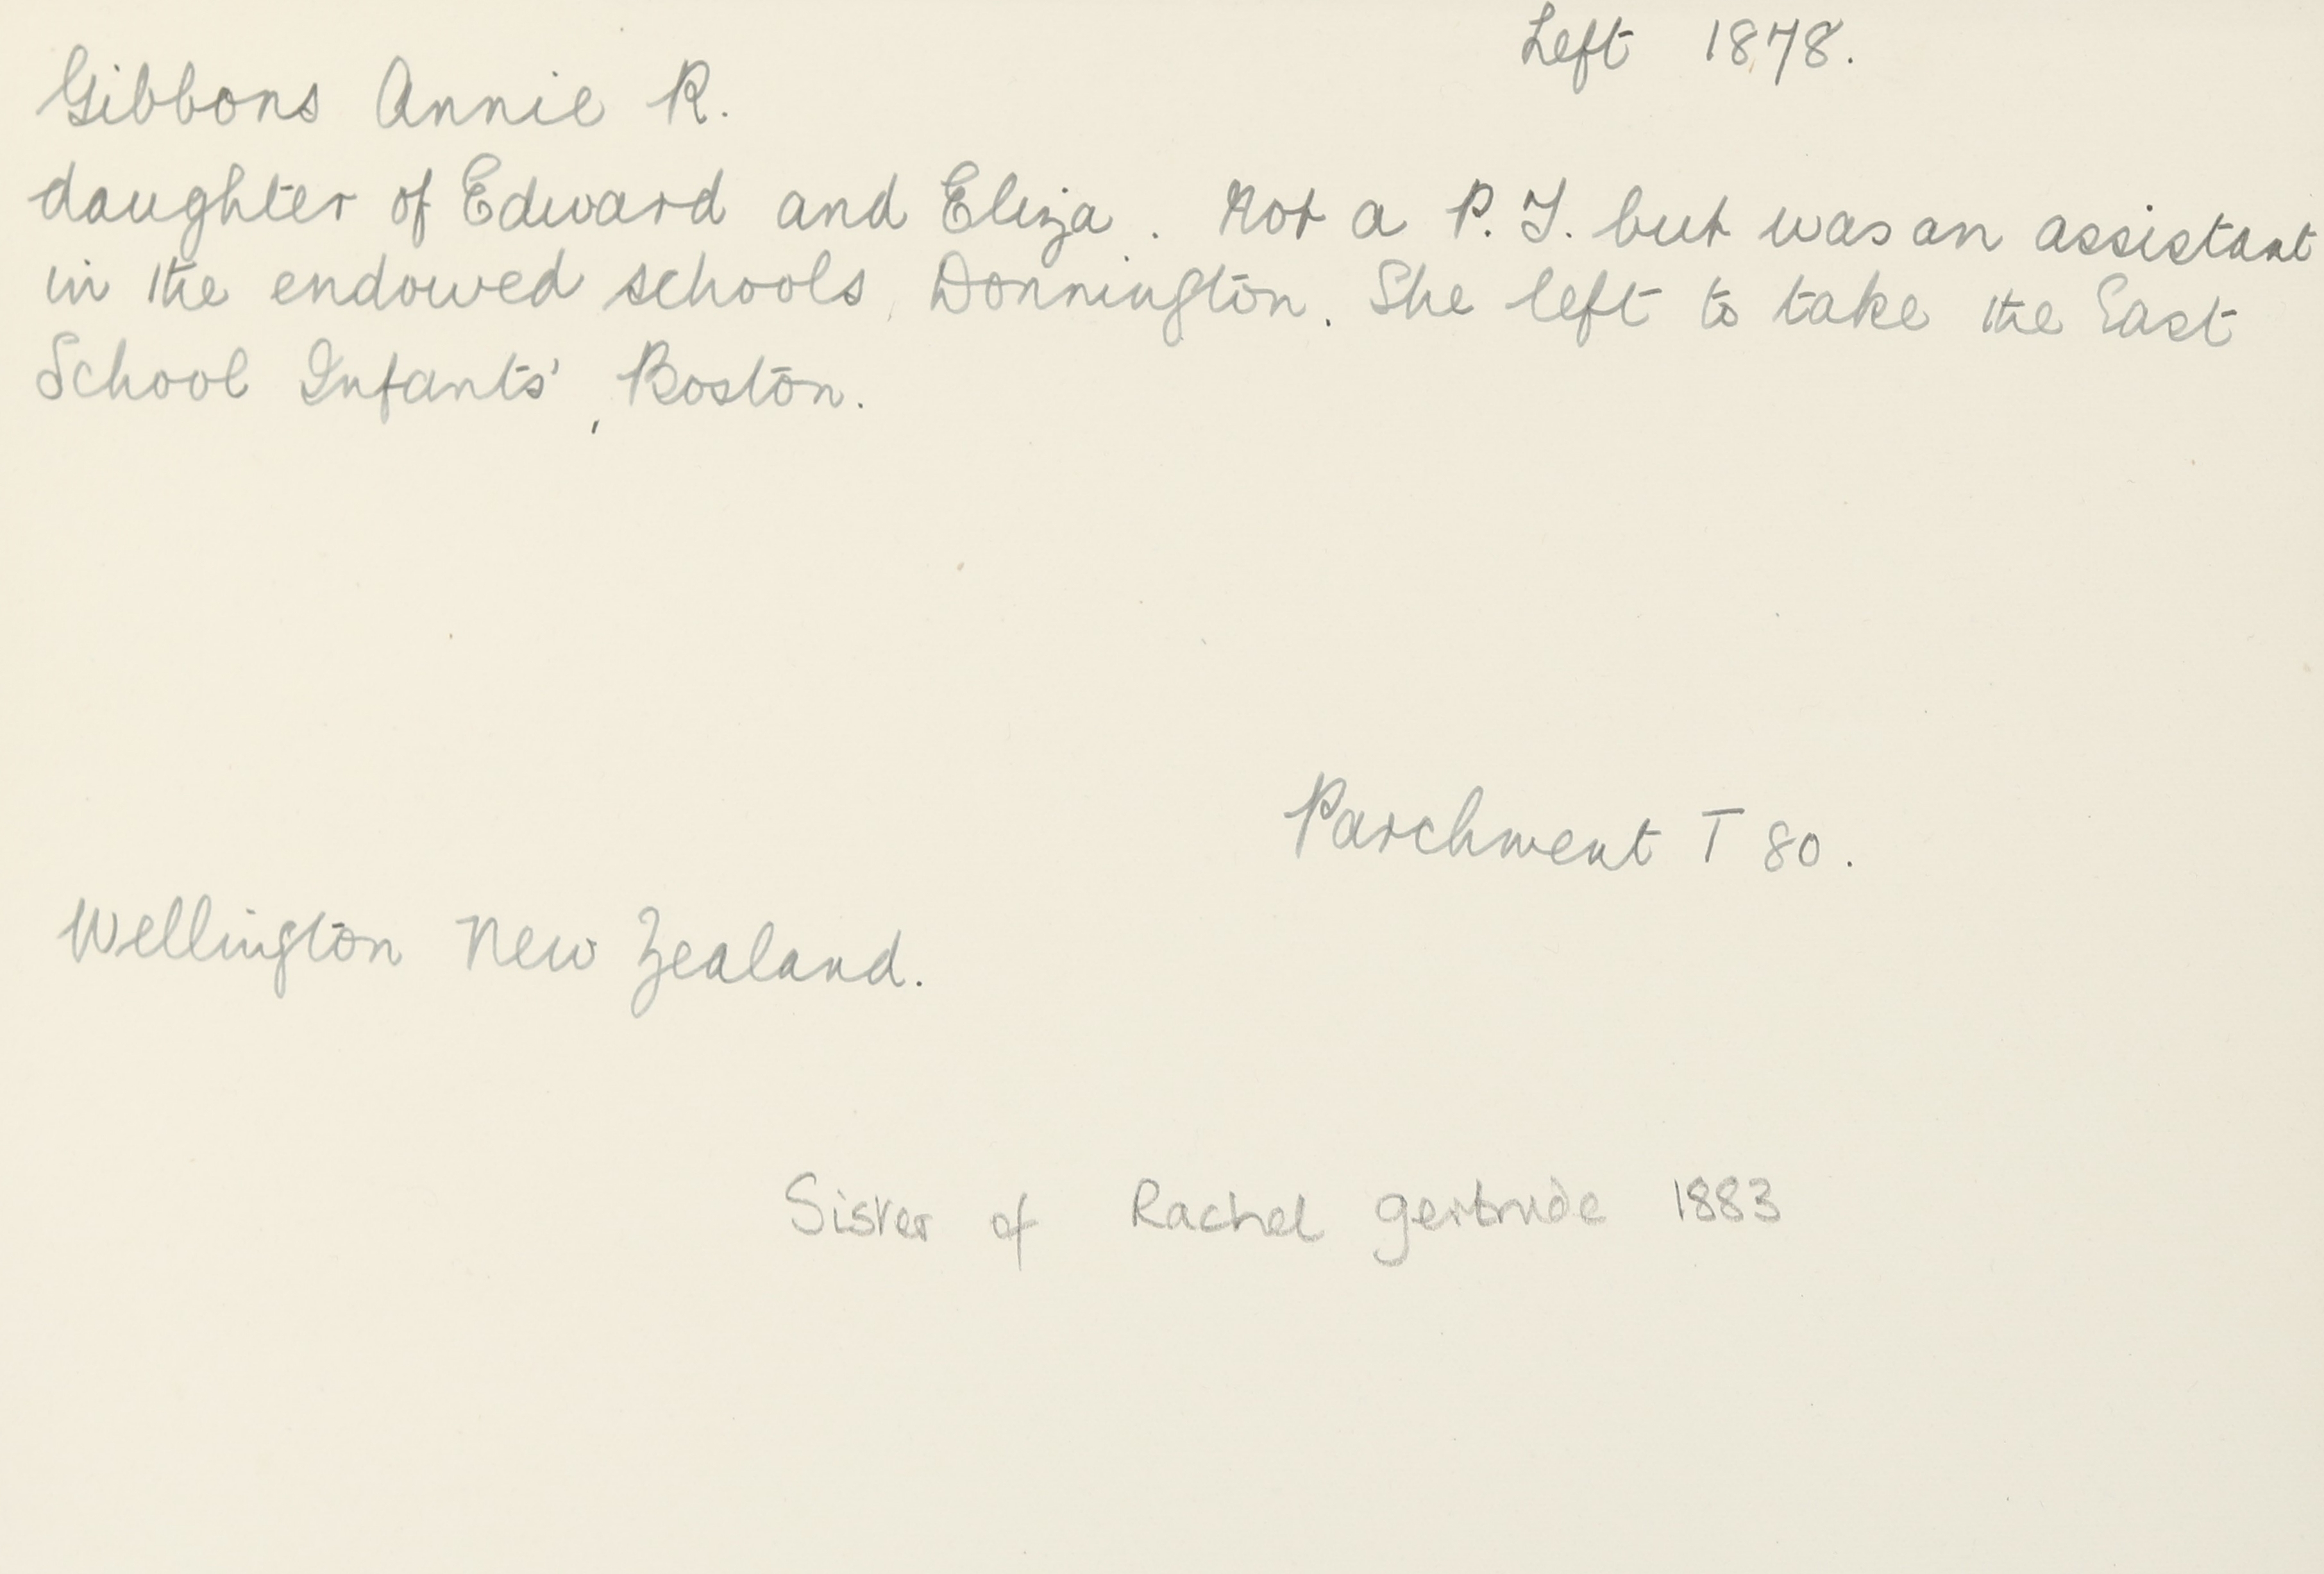 Left 1878.
Gibbons Annie R.
daughter of Edward and Eliza. Not a P.T. but was an assistant
in the endowed schools, Donnington. She left to take the East
School Infants', Boston.
Parchment T 80.
Wellington New Zealand.
Sister of Rachel Gertrude 1883